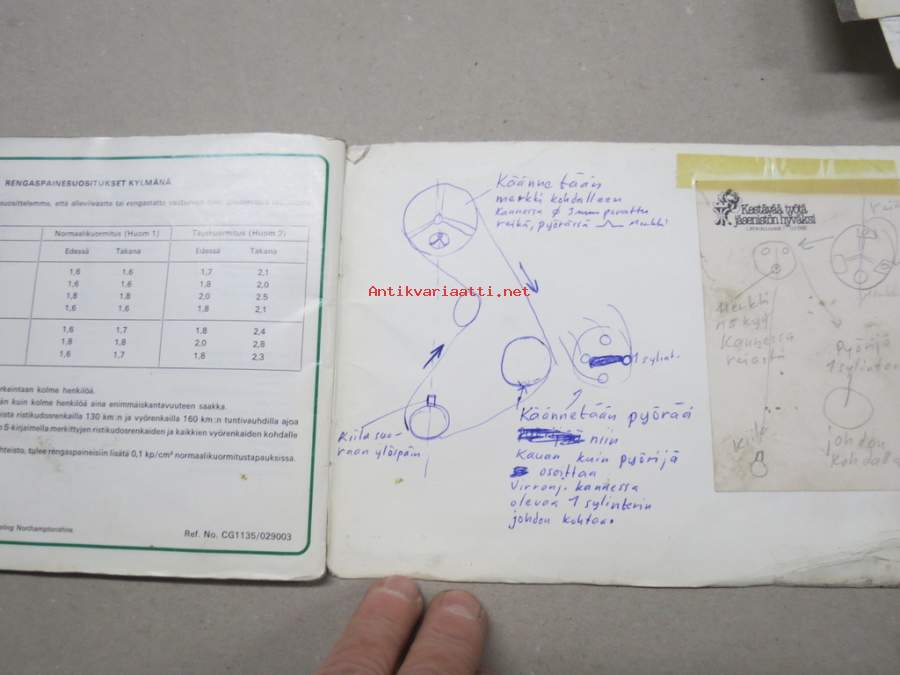 RENGASPAINESUOSITUKSET KYLMÄNÄ
suosittelemme, että allevileasto tai rengastatto
Normaalikuormitus (Huom 1) Täyskuormitus (Huom 2)
Edessä Takana Edessä Takana
1,6 1,6 1,7 2,1
1,6 1,6 1,8 2,0
1,8 1,8 2,0 2.5
1,6 1,6 1,8 2,1
1,6 1,7 1,8 2,4
1,8 1,8 2,0 2,8
1,6 1,7 1,8 2,3
rkeintaan kolme henkilöä.
än kuin kolme henkilöä aina enimmäiskantavuuteen saakka.
ista ristikudosrenkailla 130 km:n ja vyörenkailla 160 km:n tuntivauhdilla ajoa
S-kirjaimella merkittyjen ristikudosrenkaiden ja kaikkien vyörenkaiden kohdalle
hteisto, tulee rengaspaineisiin lisätä 0,1 kp/cm² normaalikuormitustapauksissa.
eling Northamptonshire
Ref. No. CG1135/029003
Käännetään
merkki kohdalleen
kannessa ø 3mm porattu
reikä, pyörässä merkki
1 sylint.
Kiila suo-
raan ylöspäin
Käännetään pyörää
niin
kauan kuin pyörijä
osoittaa
virranj. kannessa
olevaa 1 sylinterin
johdon kohtaa.
Kestävää työtä
jäsenistön hyväksi
Merkki
Kannessa
Pyörijä
1 sylinterin
johdon
kohdalla
Antikvariaatti.net